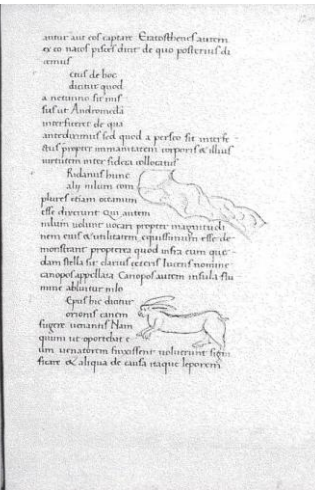 antur aut eos captare Eratosthenes autem
ex eo natos pisces dicit de quo posterius di
cemus
etus de hoc
dicitur quod
a neptuno sit mis
sus ut Andromeda
interficeret de qua
antediximus sed quod a perseo sit interfe
ctus propter immanitatem corporis & illius
uirtutem inter sidera collocatus
Ridanus hunc
alij nilum com
plures etiam oceanum
esse dixerunt Qui autem
nilum uolunt uocari propter magnitudi
nem eius & utilitatem equissimum esse de
monstrant propterea quod infra eum que
dam stella sit clarius ceteris lucens nomine
canopos appellata Canopos autem insula flu
mine abluitur nilo
Epus hic dicitur
orionis canem
fugere uenantis Nam
quum ut oportebat e
um uenatorem finxissent uoluerunt signi
ficare & aliqua de causa itaque leporem